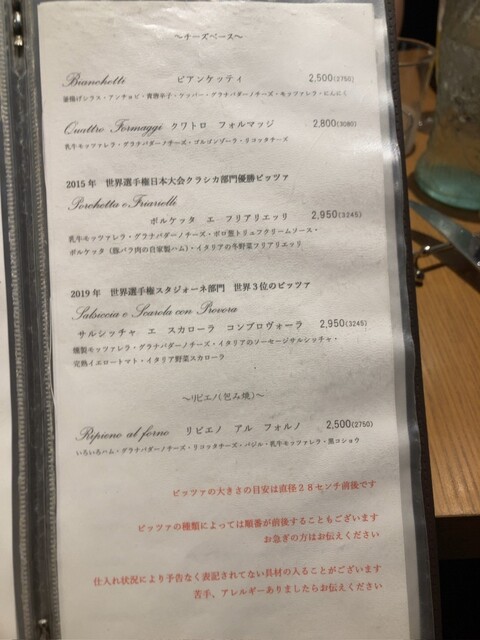 ～チーズベース～
Bianchetti ビアンケッティ 2,500(2750)
釜揚げシラス・アンチョビ・青唐辛子・ケッパー・グラナパダーノチーズ・モッツァレラ・にんにく
Quattro Formaggi クワトロ フォルマッジ 2,800(3080)
乳牛モッツァレラ・グラナパダーノチーズ・ゴルゴンゾーラ・リコッタチーズ
2015年 世界選手権日本大会クラシカ部門優勝ピッツァ
Porchetta e Friarielli
ポルケッタ エ フリアリエッリ 2,950(3245)
乳牛モッツァレラ・グラナパダーノチーズ・ポロ葱トリュフクリームソース・
ポルケッタ（豚バラ肉の自家製ハム）・イタリアの冬野菜フリアリエッリ
2019年 世界選手権スタジォーネ部門 世界３位のピッツァ
Salsiccia e Scarola con Provora
サルシッチャ エ スカローラ コンプロヴォーラ 2,950(3245)
燻製モッツァレラ・グラナパダーノチーズ・イタリアのソーセージサルシッチャ・
完熟イエロートマト・イタリア野菜スカローラ
～リピエノ(包み焼)～
Ripieno al forno リピエノ アル フォルノ 2,500(2750)
いろいろハム・グラナパダーノチーズ・リコッタチーズ・バジル・乳牛モッツァレラ・黒コショウ
ピッツァの大きさの目安は直径２８センチ前後です
ピッツァの種類によっては順番が前後することもございます
お急ぎの方はお伝えください
仕入れ状況により予告なく表記されてない具材の入ることがございます
苦手、アレルギーありましたらお伝えください